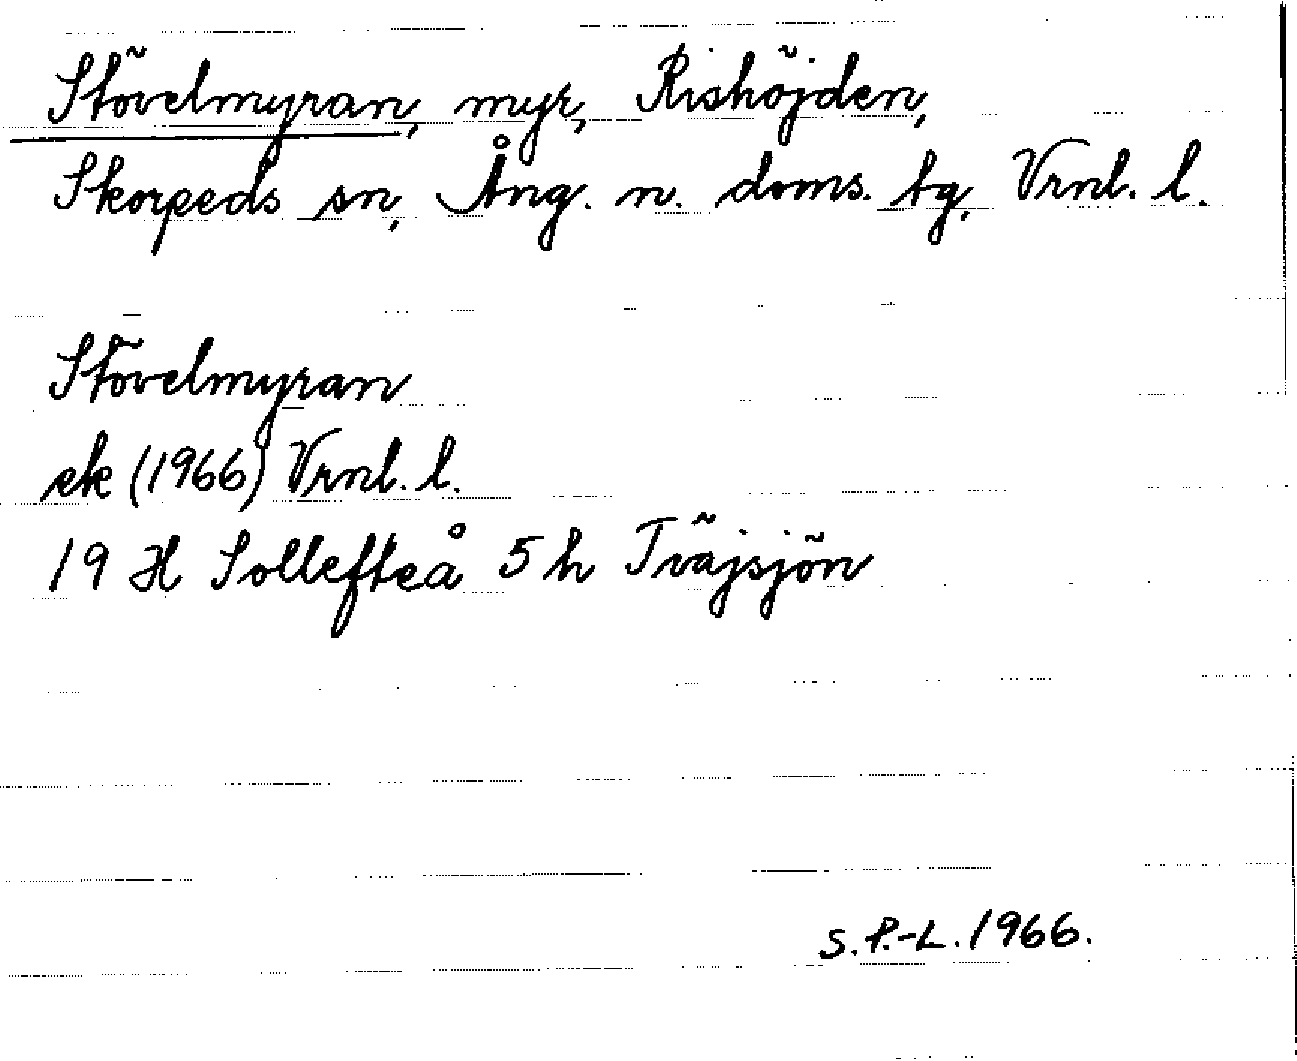 Stövelmyran, myr, Rishöjden,
Skorpeds sn, Ång. n. doms. tg, Vrnl. l.
Stövelmyran
ek (1966) Vrnl. l.
19 H Sollefteå 5 h Träjsjön
S.P.-L. 1966.